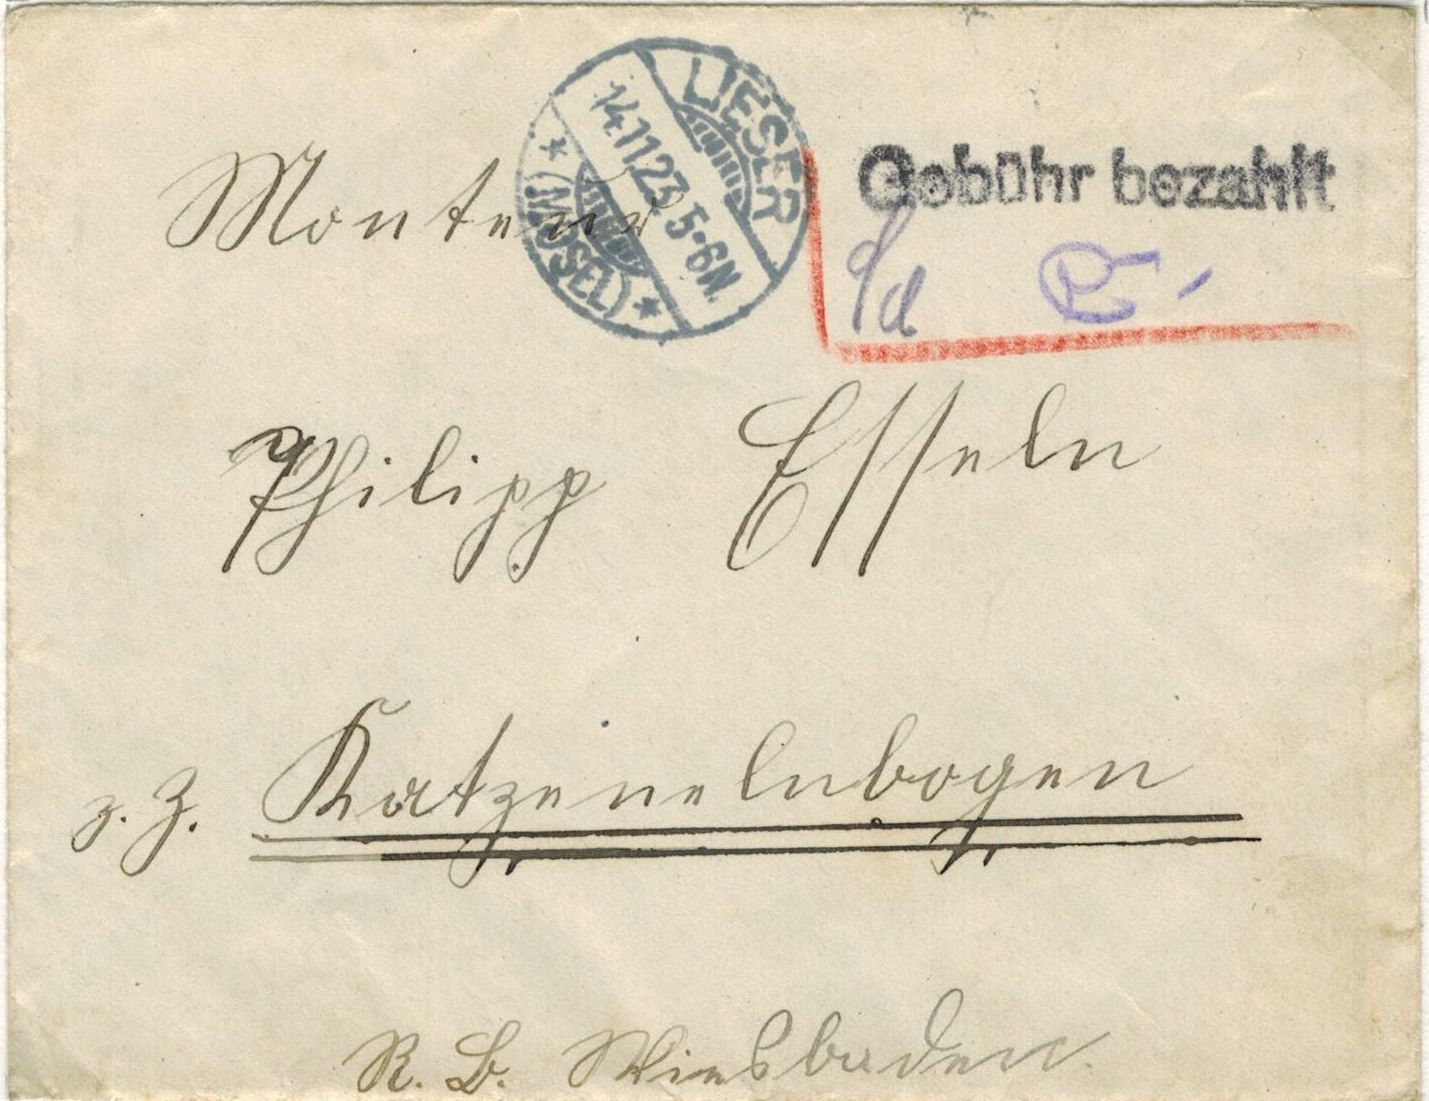 LIESER
14.11.23 5-6N.
* (MOSEL) *
Gebühr bezahlt
Monteur
Philipp Esseln
z. Z. Katzenelnbogen
R. B. Wiesbaden.